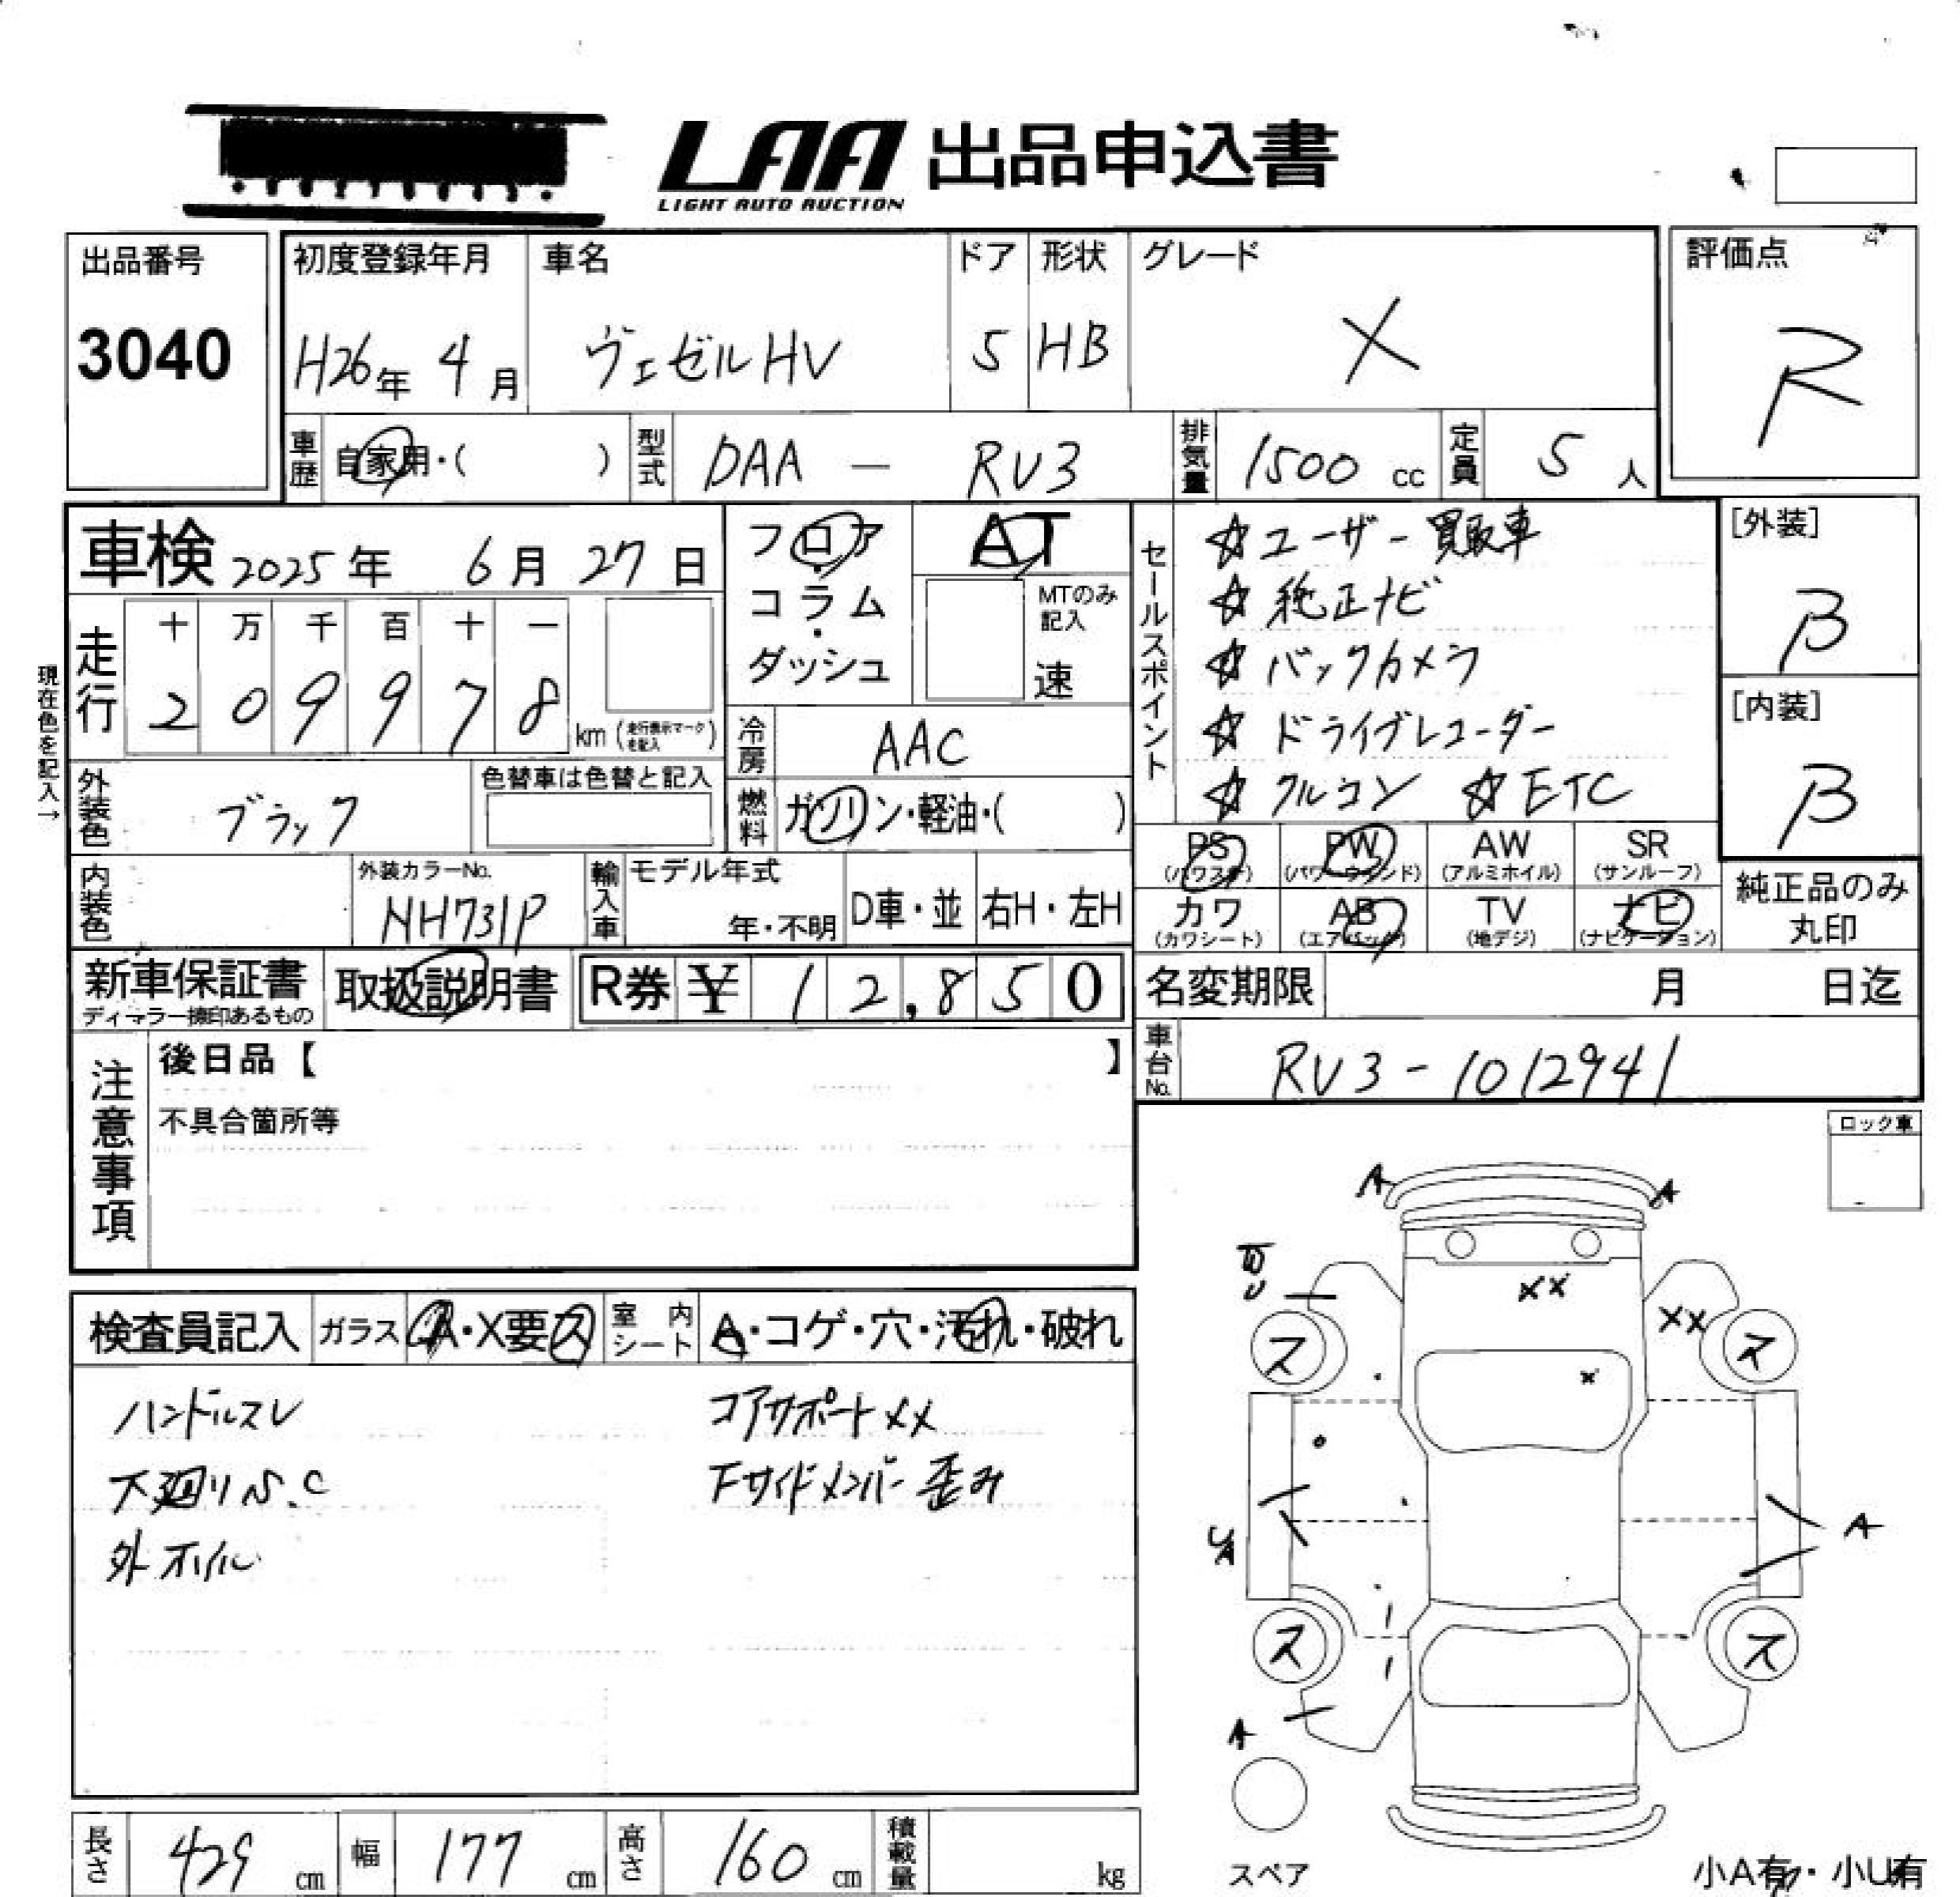 LAA 出品申込書
LIGHT AUTO AUCTION
出品番号
3040
初度登録年月
H26年 4月
車名
ヴェゼルHV
ドア
5
形状
HB
グレード
X
評価点
R
車歴 自家用・( )
型式 DAA - RV3
排気量 1500 cc
定員 5 人
車検 2025年 6月 27日
フロア・コラム・ダッシュ
AT
MTのみ記入
速
走行
十 万 千 百 十 一
2 0 9 9 7 8 km (走行表示マークを記入)
現在色を記入→
冷房 AAC
燃料 ガソリン・軽油・( )
外装色 ブラック
色替車は色替と記入
内装色
外装カラーNo.
NH731P
輸入車
モデル年式
年・不明
D車・並
右H・左H
セールスポイント
☆ユーザー買取車
☆純正ナビ
☆バックカメラ
☆ドライブレコーダー
☆クルコン ☆ETC
[外装]
B
[内装]
B
PS (パワステ)
PW (パワーウィンド)
AW (アルミホイル)
SR (サンルーフ)
カワ (カワシート)
AB (エアバック)
TV (地デジ)
ナビ (ナビゲーション)
純正品のみ丸印
新車保証書
ディーラー捺印あるもの
取扱説明書
R券 ¥ 12,850
名変期限 月 日迄
車台No. RV3-1012941
注意事項
後日品【 】
不具合箇所等
ロック車
検査員記入
ガラス A・X要ス
室内シート A・コゲ・穴・汚れ・破れ
ハンドルスレ
下廻りS.C
外ホイル
コアサポートXX
Fサイドメンバー歪み
A
A
XX
XX
X
ス
ス
A
ス
ス
A
スペア
小A有・小U有
長さ 429 cm
幅 177 cm
高さ 160 cm
積載量 kg